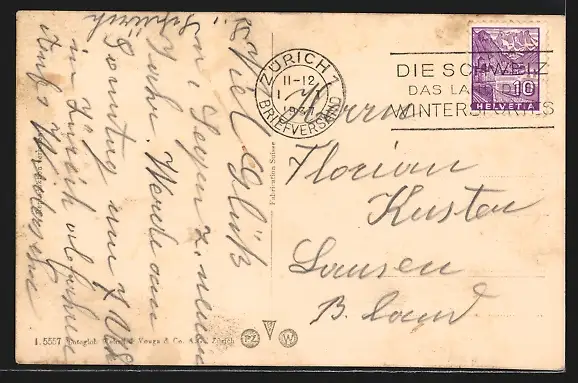 Viel Glück
u. Segen z. neuen
Jahr. Werde am
Sonntag um 7 Uhr
in Zürich abfahren
Auf Wiedersehn
ZÜRICH 1
11-12
BRIEFVERSAND
DIE SCHWEIZ
DAS LA
WINTERSPORTES
10
HELVETIA
Herrn
Florian
Kuster
Lausen
B. Land
Fabrication Suisse
1. 5557 Photoglob-Wehrli & Vouga & Co. A.G. Zürich
PZ
W